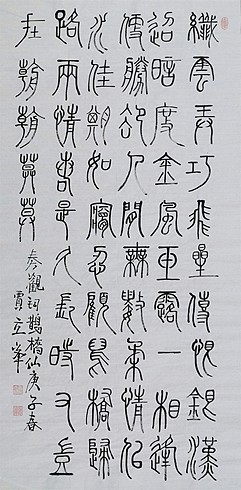 纖雲弄巧飛星傳恨銀漢
迢迢暗度金風玉露一相逢
便勝卻人間無數柔情似
水佳期如夢忍顧鵲橋歸
路兩情若是久長時又豈
在朝朝暮暮
秦觀詞鵲橋仙庚子春
賈立峯